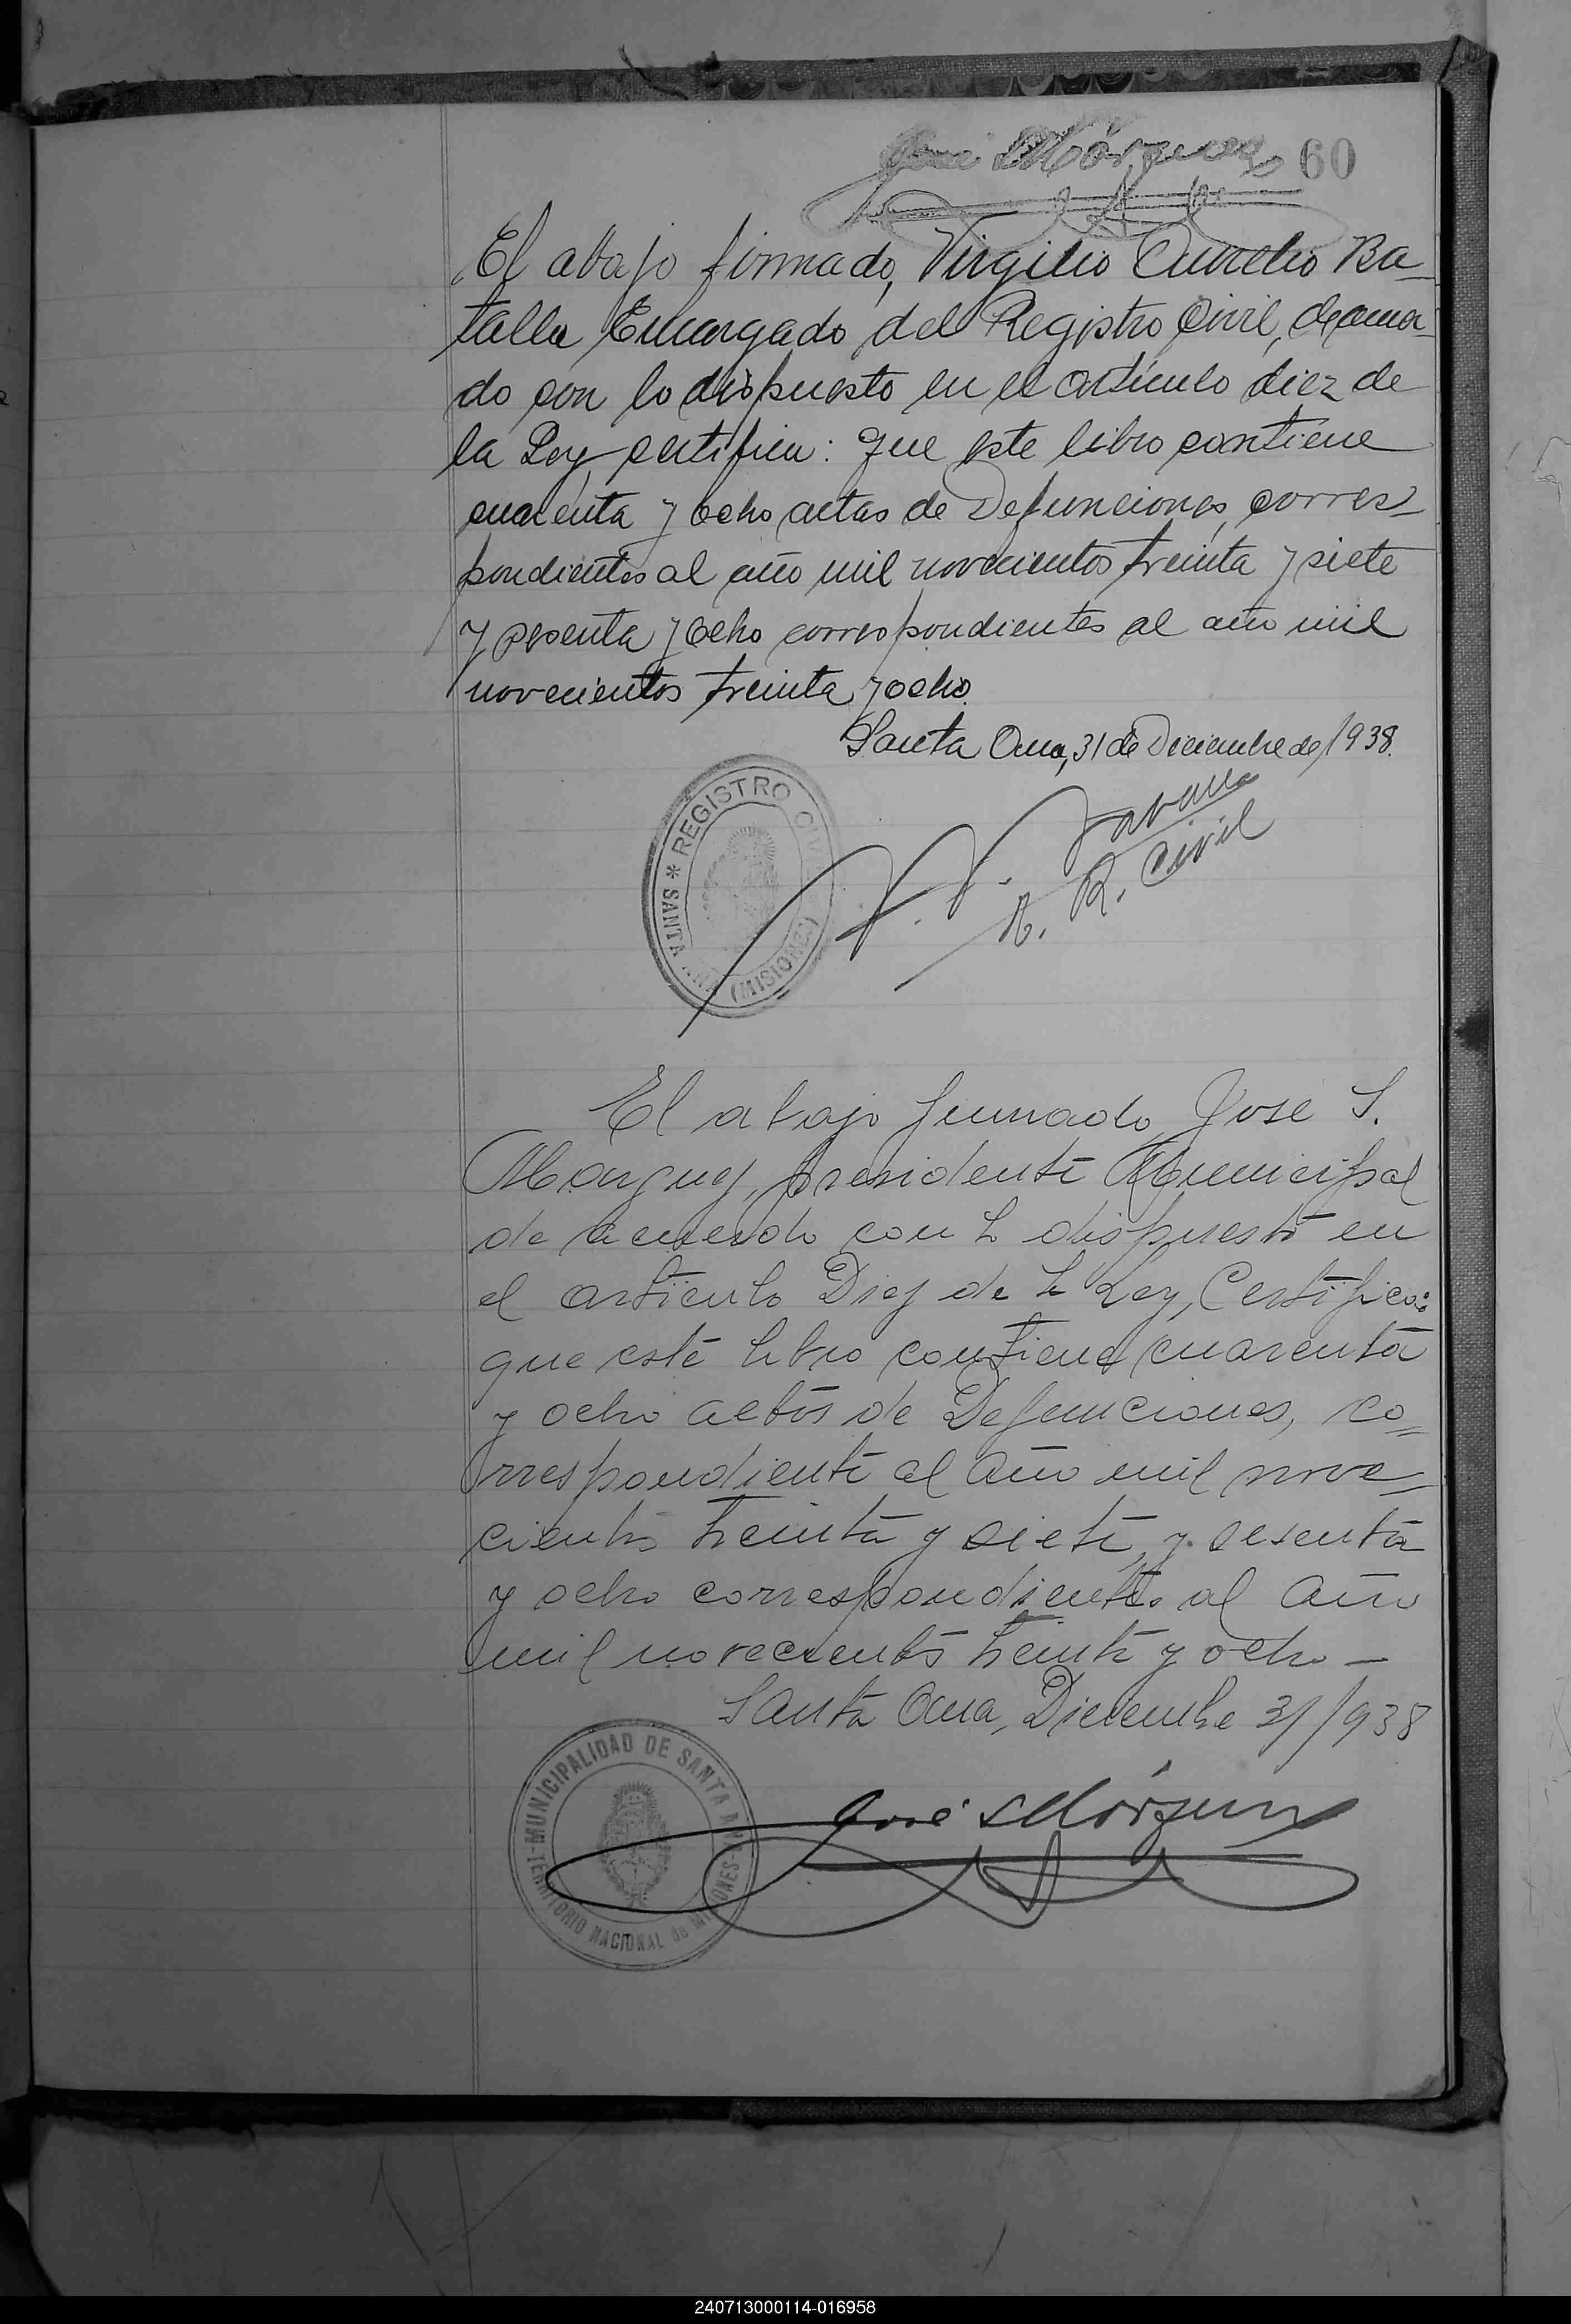 José S Márquez 60
El abajo firmado, Virgilio Aurelio Ba-
talla Encargado del Registro Civil, de acuer-
do con lo dispuesto en el artículo diez de
la Ley, certifica: que este libro contiene
cuarenta y ocho actas de Defunciones, corres-
pondientes al año mil novecientos treinta y siete
y sesenta y ocho correspondientes al año mil
novecientos treinta y ocho.
Santa Ana, 31 de Diciembre de 1938.
REGISTRO CIVIL
* SANTA ANA (MISIONES)
R. Civil
El abajo firmado, José S.
Márquez, presidente Municipal
de acuerdo con lo dispuesto en
el artículo Diez de la Ley, Certifica:
que este libro contiene cuarenta
y ocho actas de Defunciones, co=
rrespondiente al año mil nove=
cientos treinta y siete, y sesenta
y ocho correspondientes al año
mil novecientos treinta y ocho —
Santa Ana, Diciembre 31/938
MUNICIPALIDAD DE SANTA ANA
TERRITORIO NACIONAL de MISIONES
José S Márquez
240713000114-016958